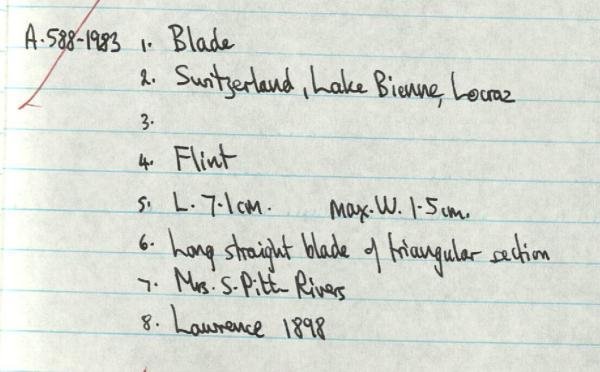 A.588-1983 1. Blade
2. Switzerland, Lake Bienne, Locraz
3.
4. Flint
5. L. 7.1cm. max. W. 1.5cm.
6. Long straight blade of triangular section
7. Mrs. S. Pitt-Rivers
8. Lawrence 1898